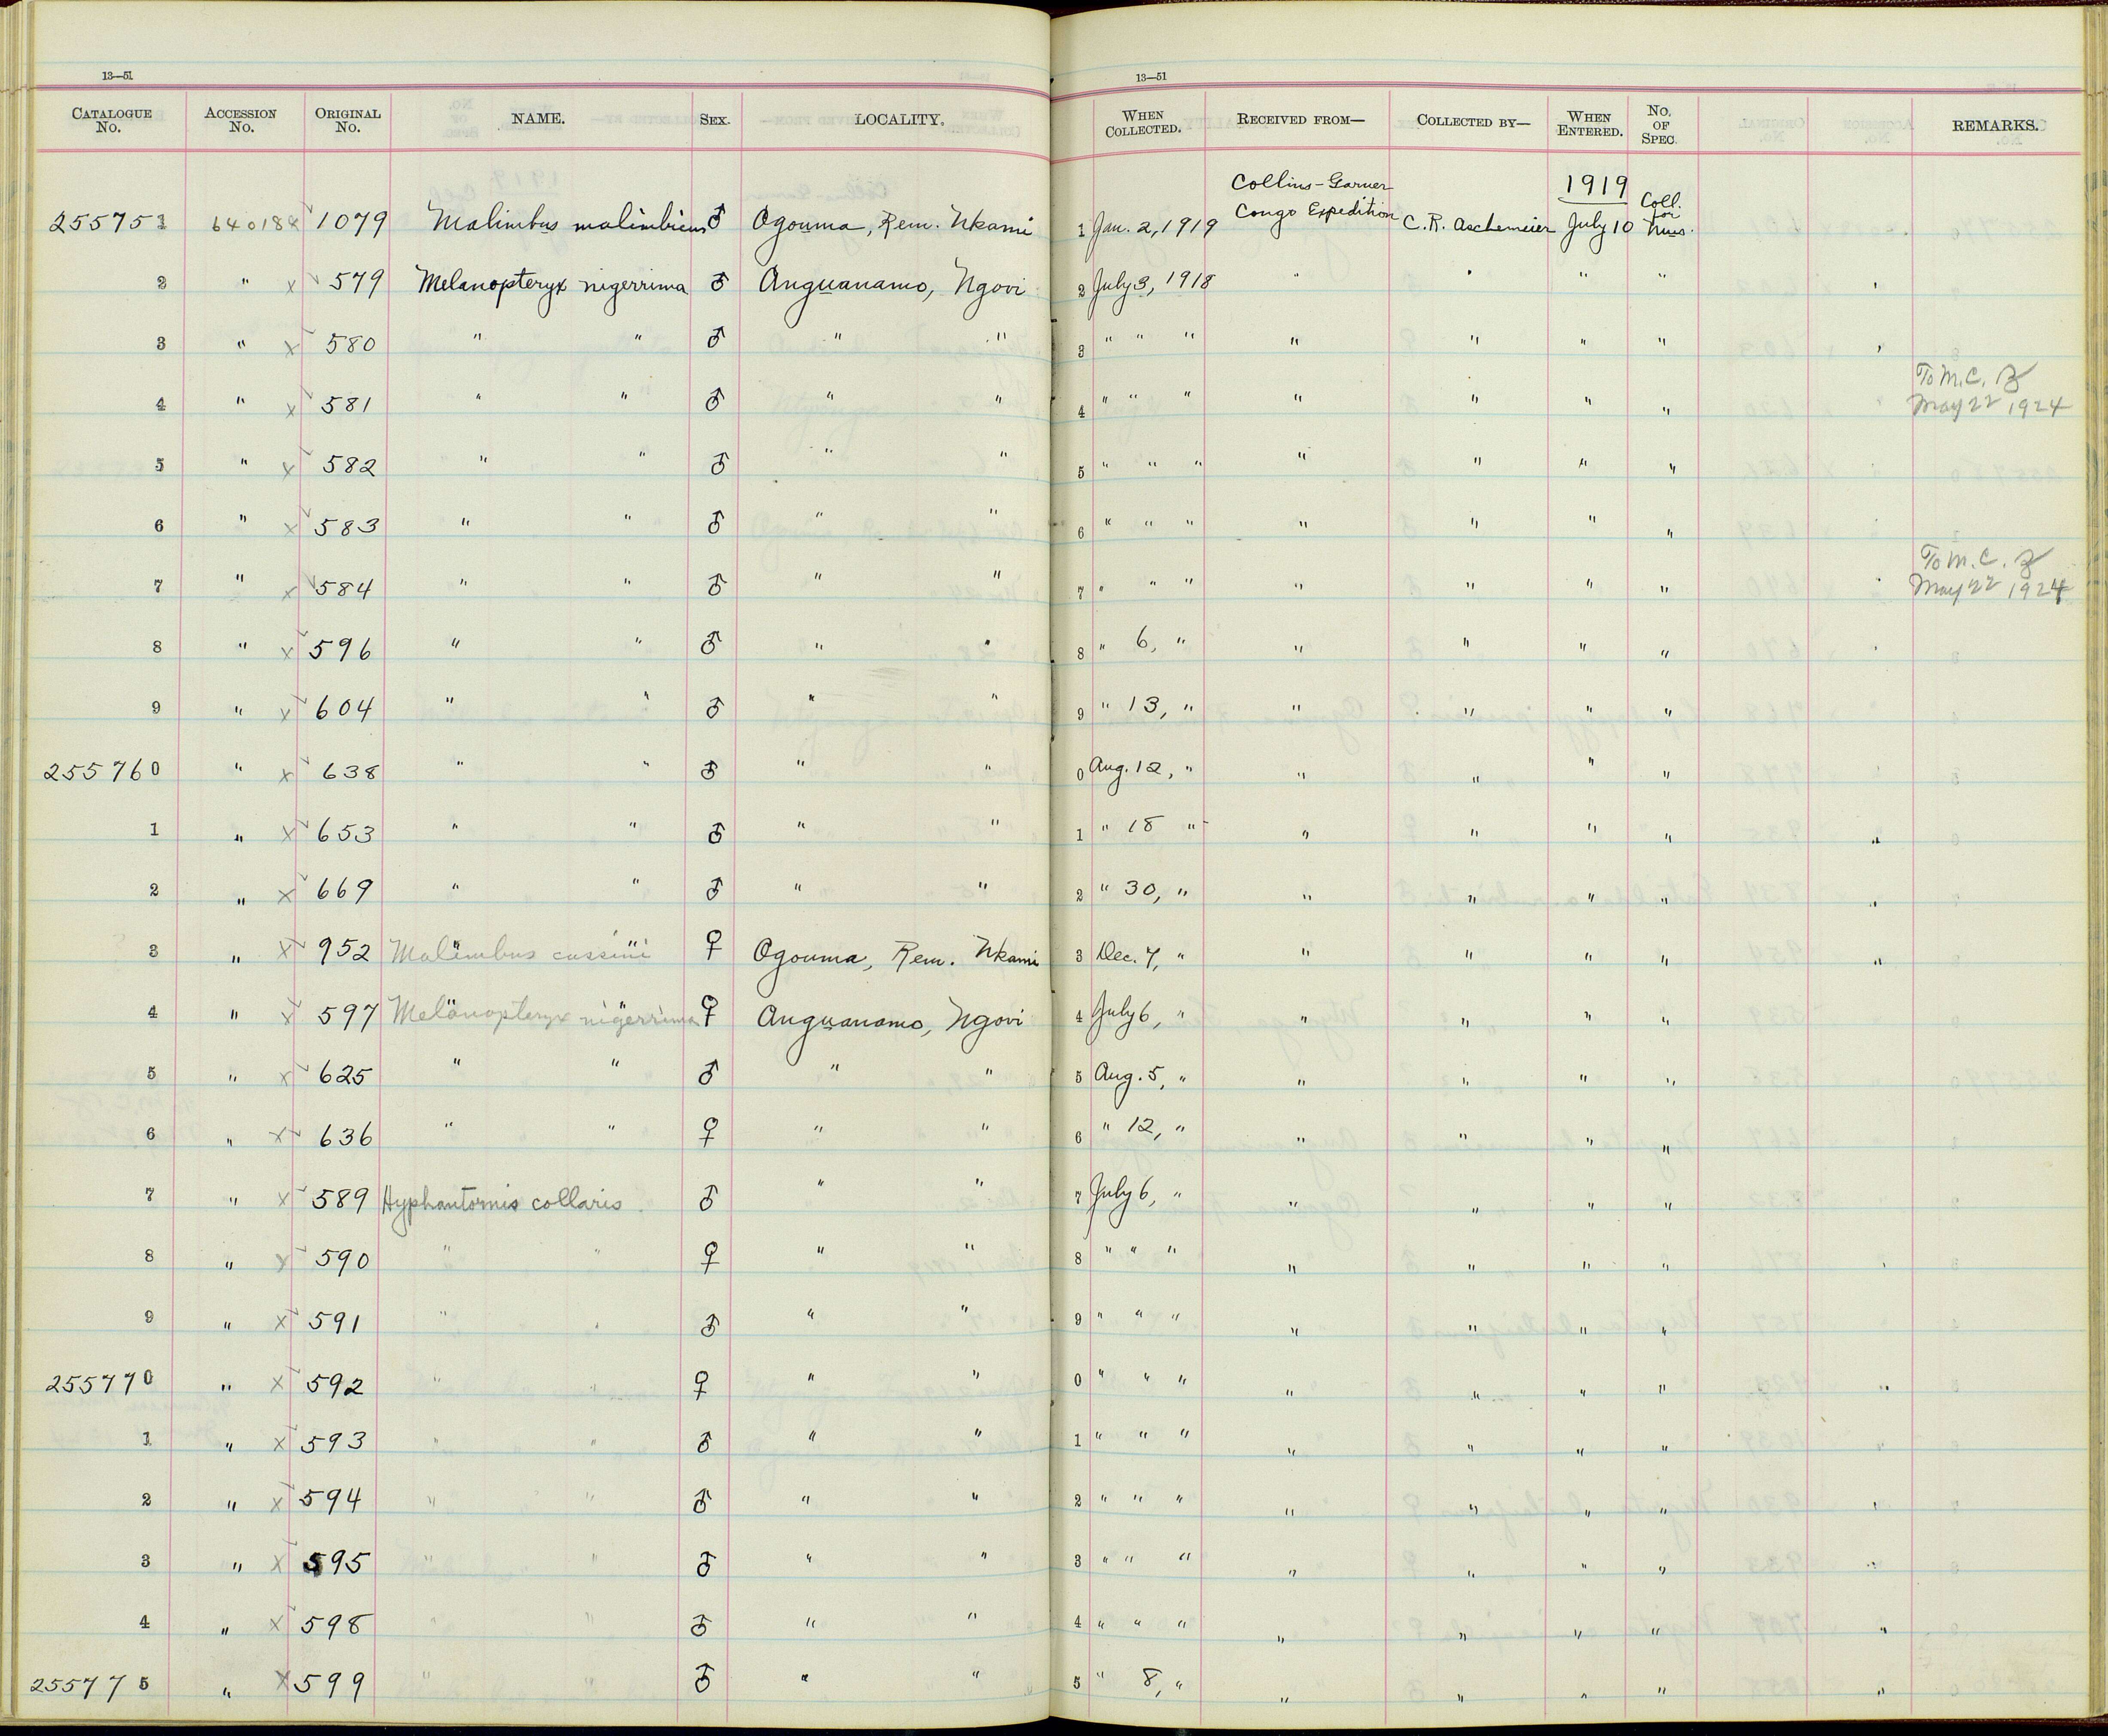 13—51
CATALOGUE No. ACCESSION No. ORIGINAL No. NAME. SEX. LOCALITY.
255751 640184 1079 Malimbus malimbicus ♂ Ogouma, Rem. Nkami
2 " x 579 Melanopteryx nigerrima ♂ Anguanamo, Ngovi
3 " x 580 " " ♂ " "
4 " x 581 " " ♂ " "
5 " x 582 " " ♂ " "
6 " x 583 " " ♂ " "
7 " x 584 " " ♂ " "
8 " x 596 " " ♂ " "
9 " x 604 " " ♂ " "
255760 " x 638 " " ♂ " "
1 " x 653 " " ♂ " "
2 " x 669 " " ♂ " "
3 " x 952 Malimbus cassini ♀ Ogouma, Rem. Nkami
4 " x 597 Melanopteryx nigerrima ♀ Anguanamo, Ngovi
5 " x 625 " " ♂ " "
6 " x 636 " " ♀ " "
7 " x 589 Hyphantornis collaris ♂ " "
8 " x 590 " " ♀ " "
9 " x 591 " " ♂ " "
255770 " x 592 " " ♀ " "
1 " x 593 " " ♂ " "
2 " x 594 " " ♂ " "
3 " x 595 " " ♂ " "
4 " x 598 " " ♂ " "
255775 " x 599 " " ♂ " "
13—51
WHEN COLLECTED. RECEIVED FROM— COLLECTED BY— WHEN ENTERED. No. OF SPEC. REMARKS.
Collins-Garner 1919 Coll.
1 Jan. 2, 1919 Congo Expedition C. R. Aschemeier July 10 for Mus.
2 July 3, 1918 " " " "
3 " " " " " " "
To M.C.Z
4 " " " " " " " May 22 1924
5 " " " " " " "
6 " " " " " " "
To M.C.Z
7 " " " " " " " May 22 1924
8 " 6, " " " " "
9 " 13, " " " " "
0 Aug. 12, " " " " "
1 " 18 " " " " "
2 " 30, " " " " "
3 Dec. 7, " " " " "
4 July 6, " " " " "
5 Aug. 5, " " " " "
6 " 12, " " " " "
7 July 6, " " " " "
8 " " " " " " "
9 " " " " " " "
0 " " " " " " "
1 " " " " " " "
2 " " " " " " "
3 " " " " " " "
4 " " " " " " "
5 " 8, " " " " "